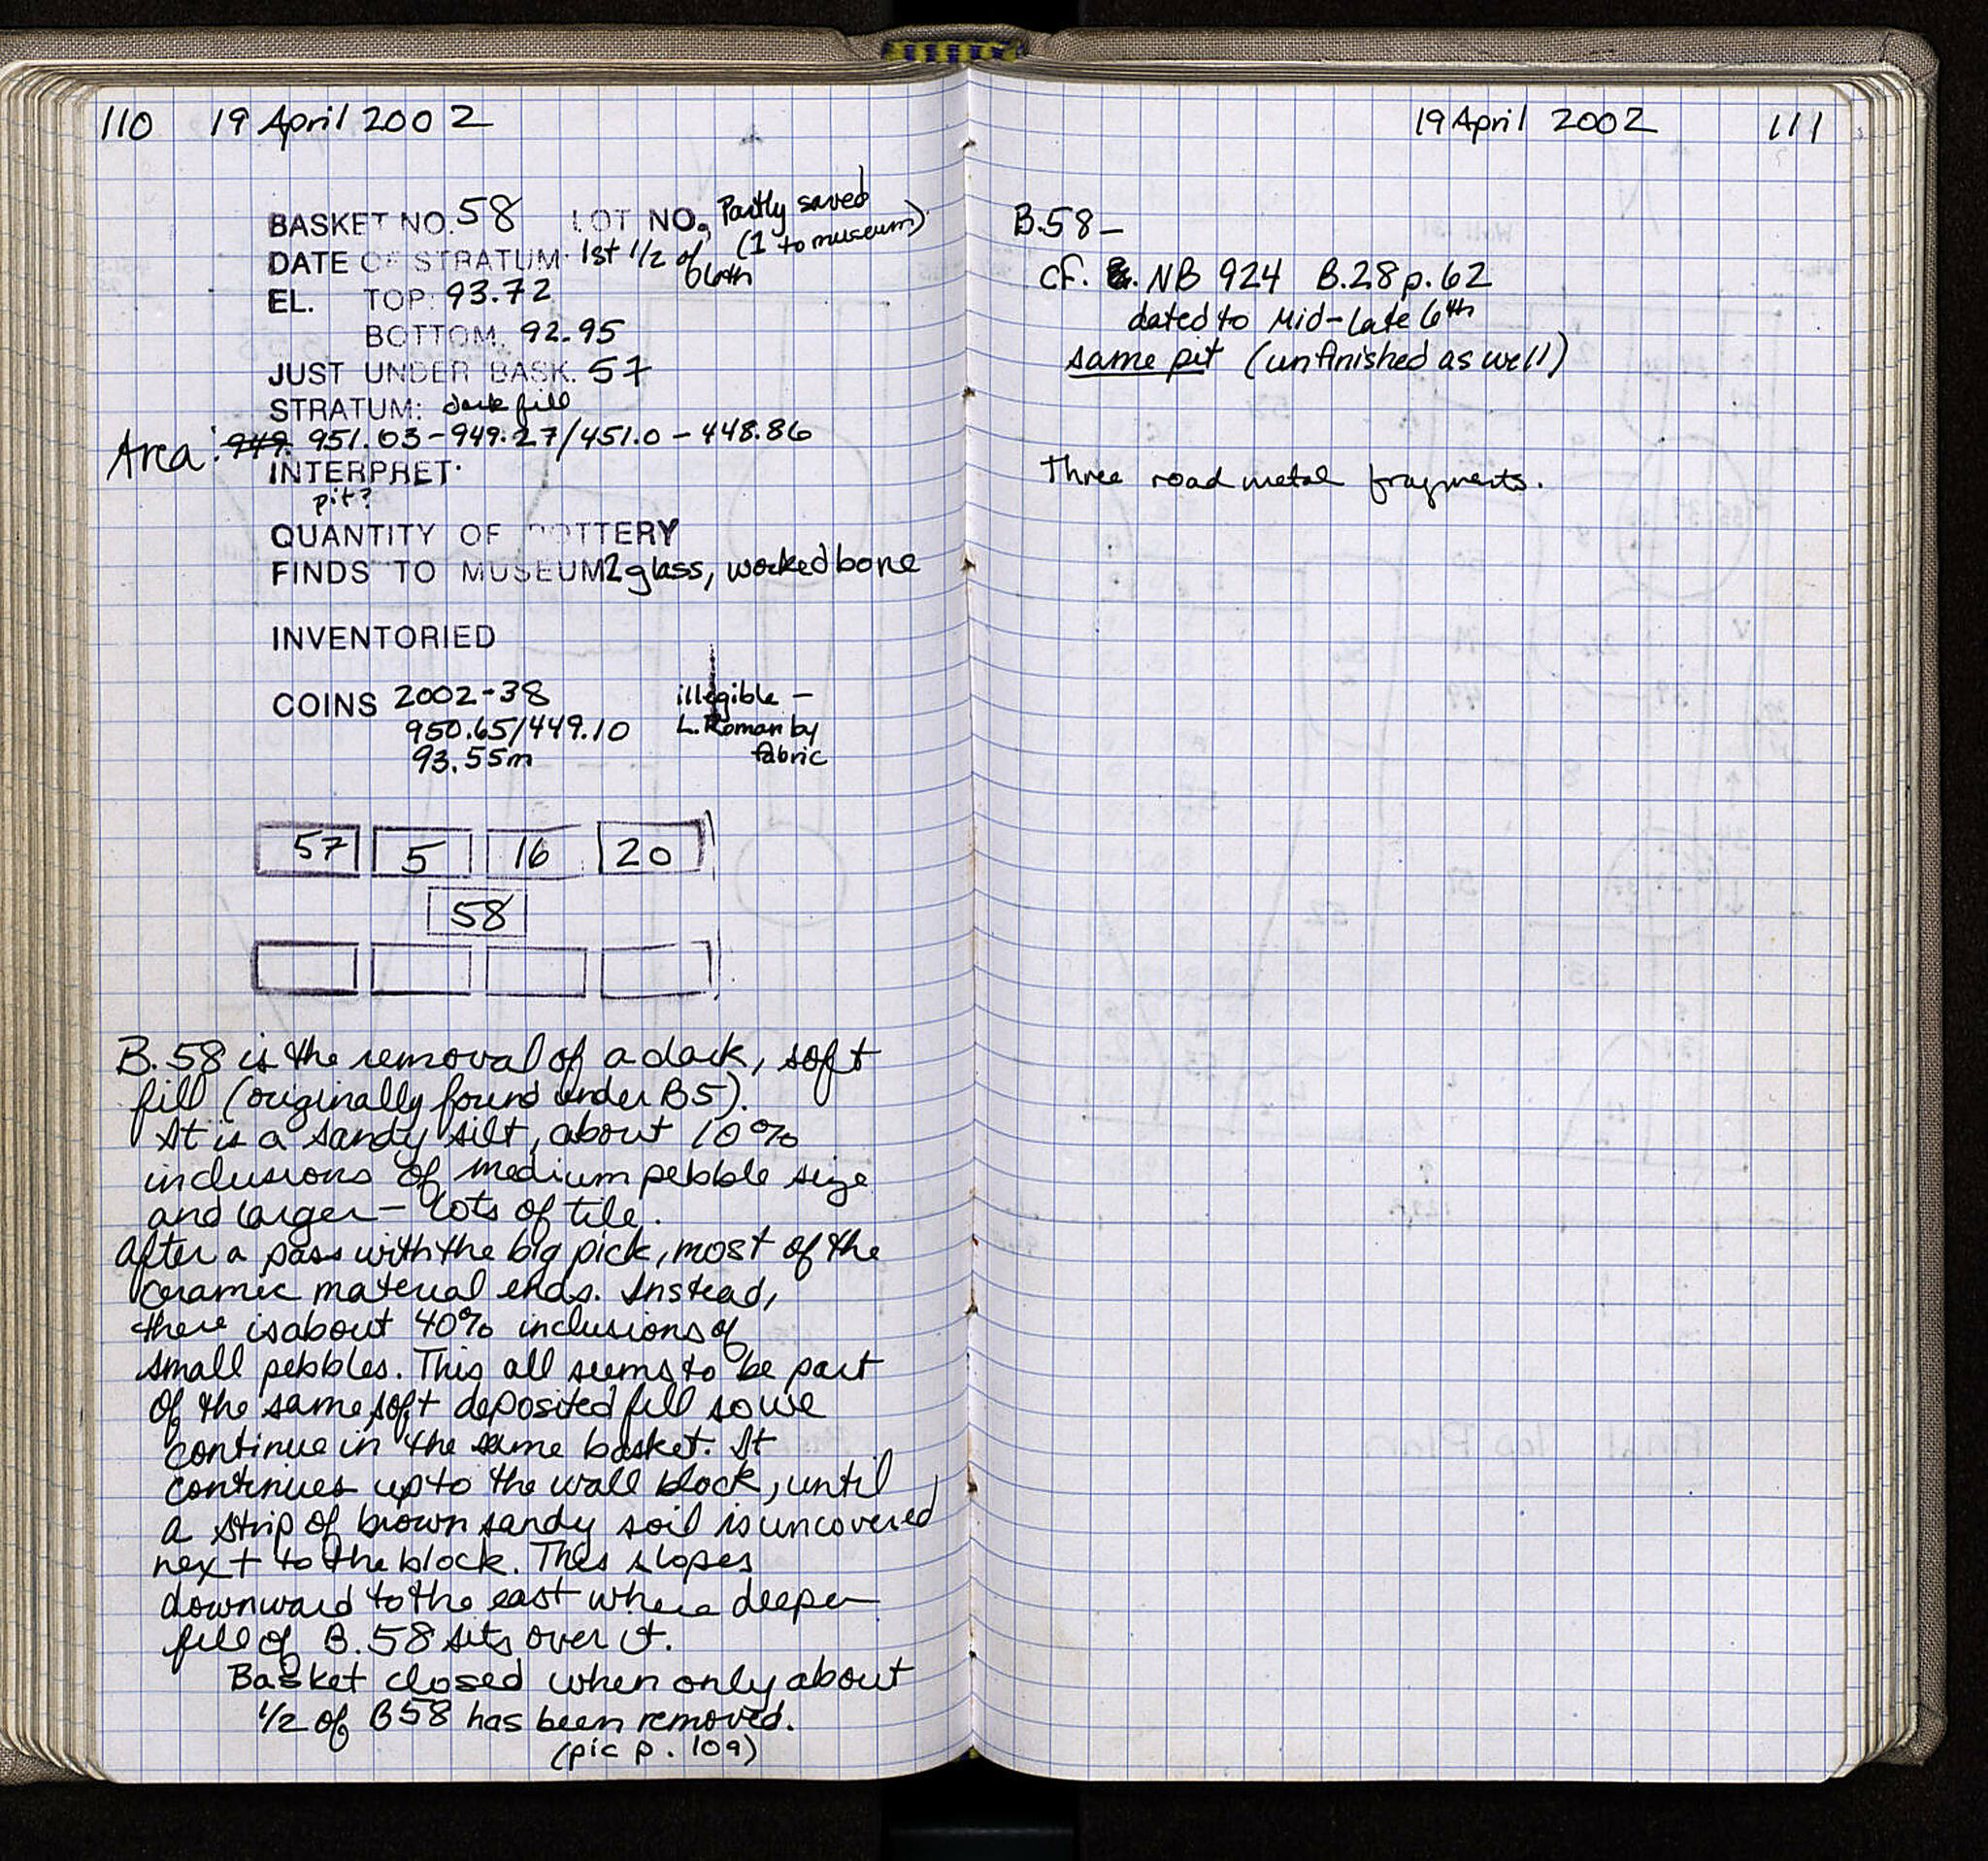 110 19 April 2002
BASKET NO. 58 LOT NO. Partly saved
(1 to museum)
DATE OF STRATUM 1st 1/2 of
6th
EL. TOP: 93.72
BOTTOM. 92.95
JUST UNDER BASK. 57
STRATUM: dark fill
Area: 949. 951.03-949.27/451.0-448.86
INTERPRET.
pit?
QUANTITY OF POTTERY
FINDS TO MUSEUM 2 glass, worked bone
INVENTORIED
COINS 2002-38 illegible -
950.65/449.10 L. Roman by
93.55m fabric
57 5 16 20
58
B.58 is the removal of a dark, soft
fill (originally found under B5).
It is a sandy silt, about 10%
inclusions of medium pebble size
and larger - lots of tile.
After a pass with the big pick, most of the
ceramic material ends. Instead,
there is about 40% inclusions of
small pebbles. This all seems to be part
of the same soft deposited fill so we
continue in the same basket. It
continues up to the wall block, until
a strip of brown sandy soil is uncovered
next to the block. This slopes
downward to the east where deeper
fill of B.58 sits over it.
Basket closed when only about
1/2 of B58 has been removed.
(pic p. 109)
19 April 2002 111
B.58-
cf. NB 924 B.28 p.62
dated to Mid-late 6th
same pit (unfinished as well)
Three road metal fragments.